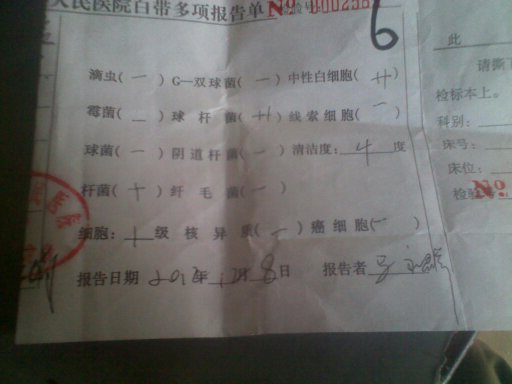 人民医院白带多项报告单 检验号 No 000255
6
滴虫(一) G—双球菌(一) 中性白细胞(++)
霉菌(一) 球杆菌(++) 线索细胞(一)
球菌(一) 阴道杆菌(一) 清洁度: 4 度
杆菌(+) 纤毛菌(一)
细胞: 级 核异质(一) 癌细胞(一)
报告日期 201 年 月 8日 报告者
此
请撕下
检标本上。
科别:
床号:
床位:
检验 No